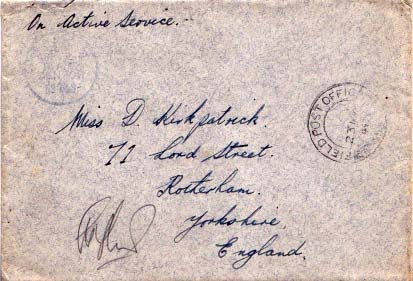 On Active Service.
Miss D. Kirkpatrick.
71 Lord Street.
Rotherham.
Yorkshire,
England.
FIELD POST OFFICE